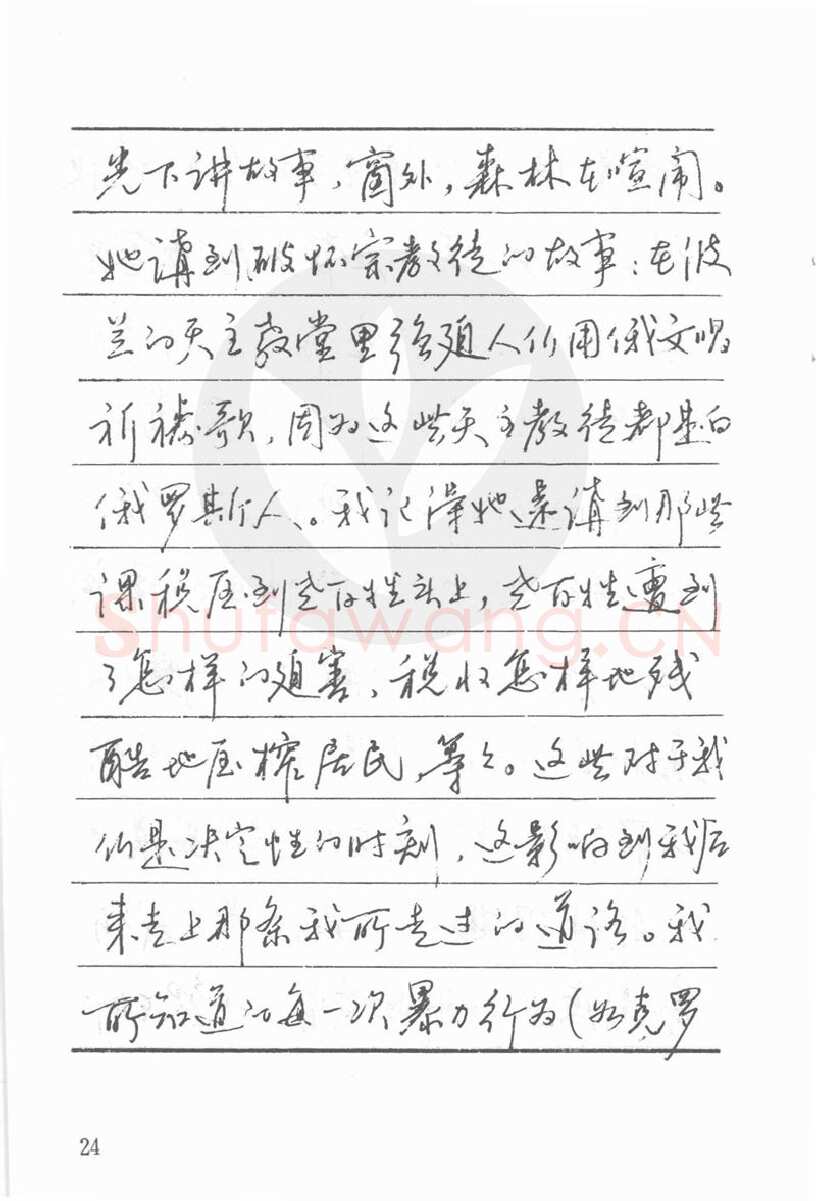 光下讲故事，窗外，森林在喧闹。
她講到破坏宗教徒的故事：在波
兰的天主教堂里强迫人们用俄文唱
祈祷歌，因为这些天主教徒都是白
俄罗斯人。我记得她还講到那些
課税压到老百姓头上，老百姓遭到
了怎样的迫害，税收怎样地残
酷地压榨居民，等々。这些对于我
们是决定性的时刻，这影响到我后
来走上那条我所走过的道路。我
所知道的每一次暴力行为（如克罗
shufawang.CN
24